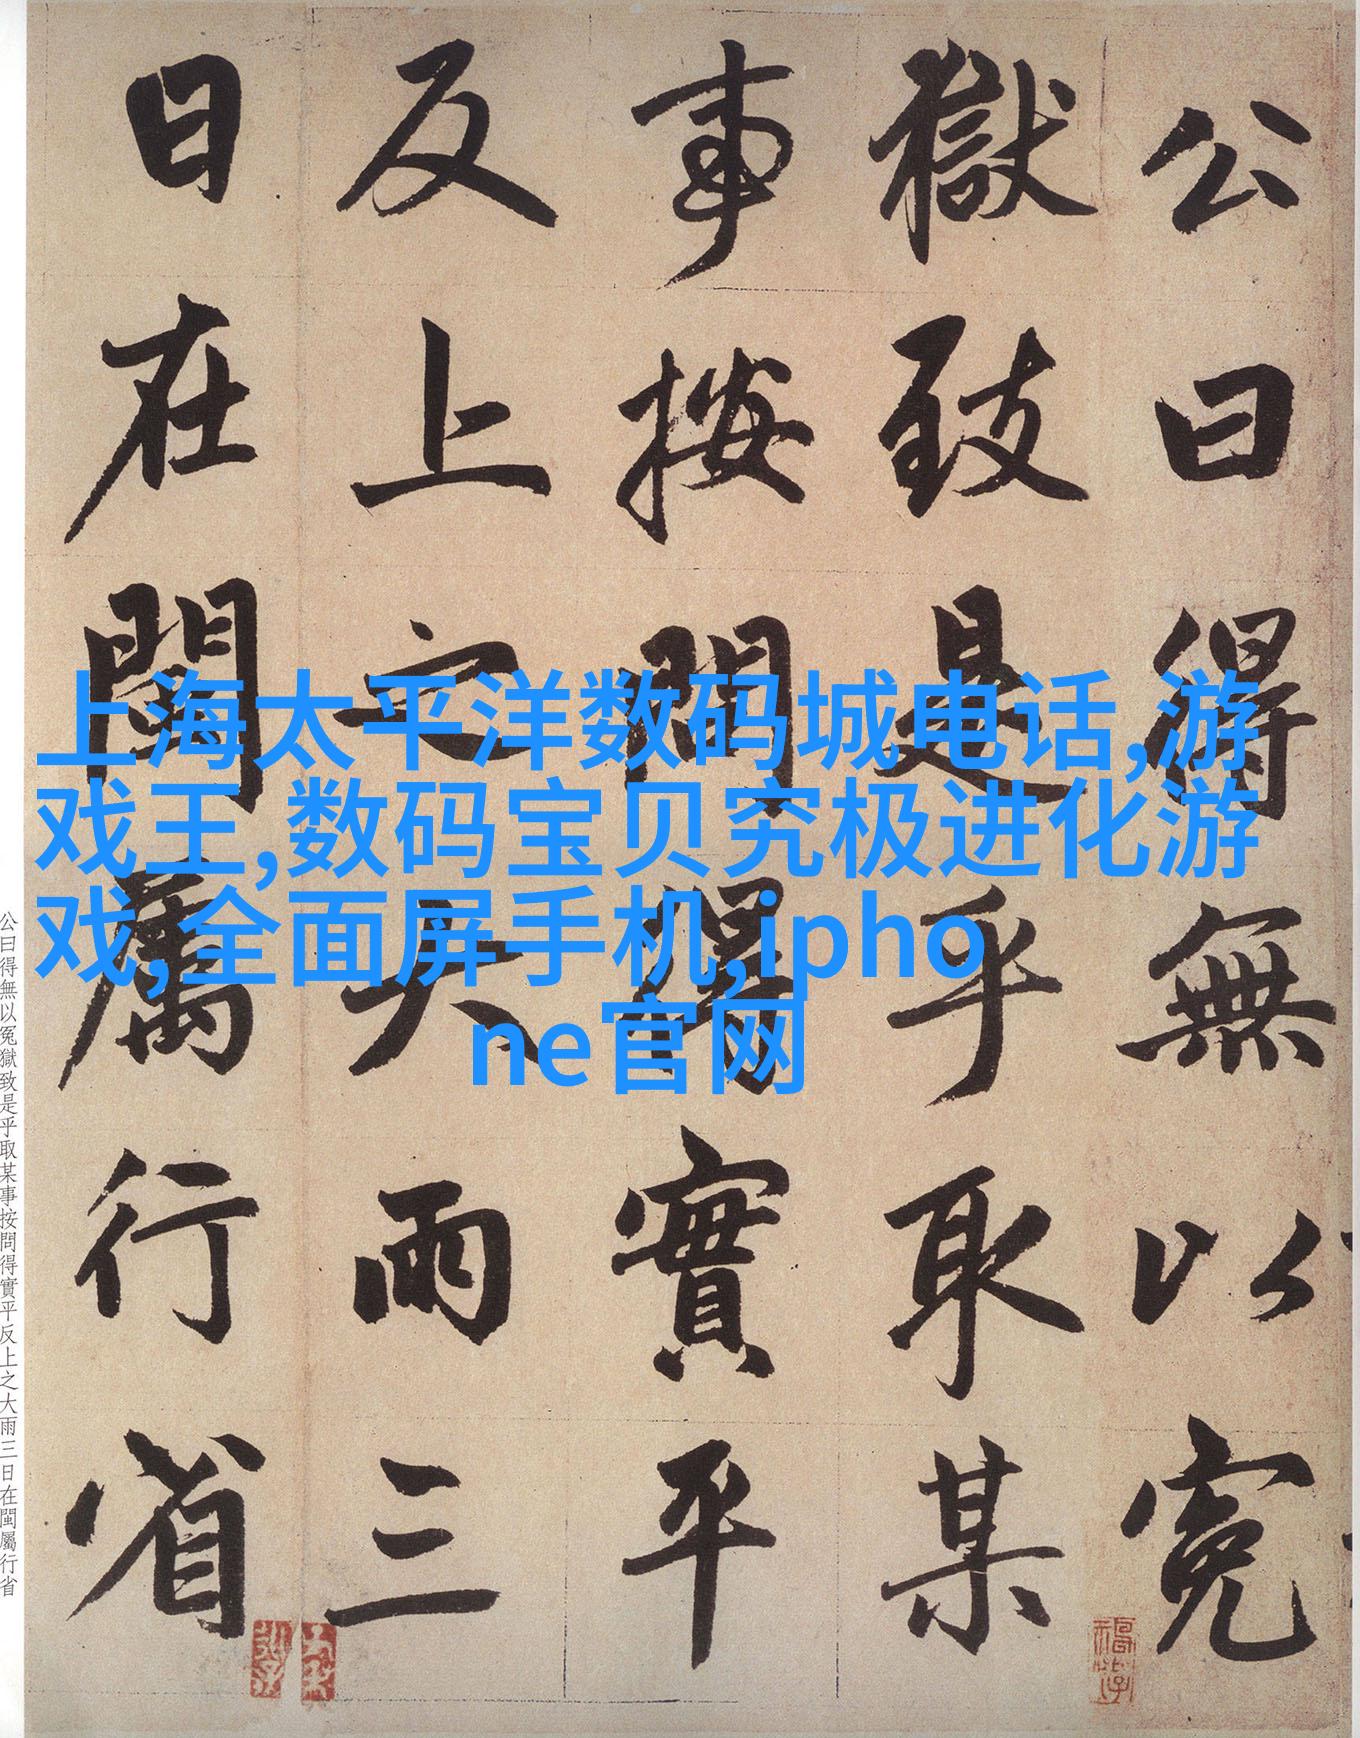 公曰得無以冤
獄致是乎取某
事按問得實平
反上之大雨三
日在閩屬行省
上海太平洋数码城电话,游
戏王,数码宝贝究极进化游
戏,全面屏手机,ipho
ne官网
公曰得無以冤獄致是乎取某事按問得實平反上之大雨三日在閩屬行省